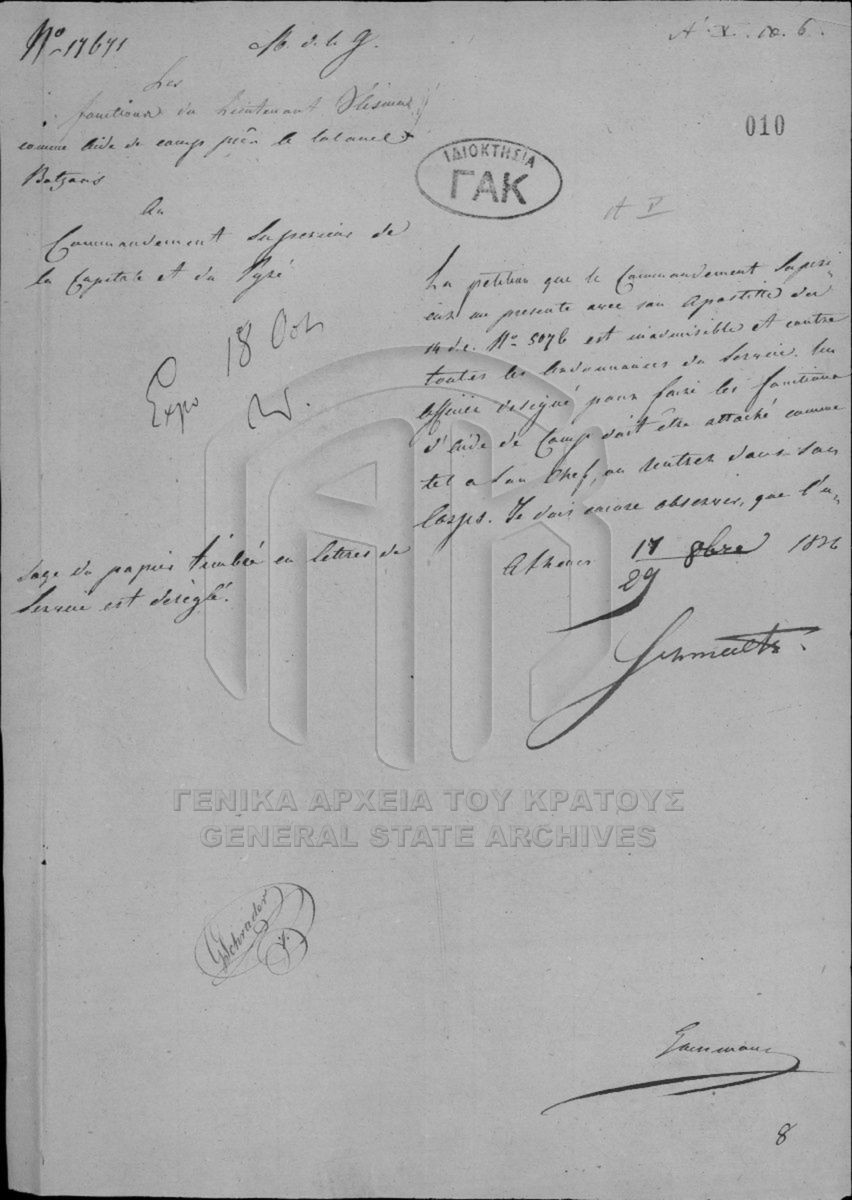 No 17671
M. d. l. g.
A. X. 10. 6.
010
Les
fonctions du Lieutenant
comme Aide de camp près le Colonel
Botzaris
Au
Commandement Superieur de
la Capitale et du Pyré
Expo 18 Oct
ΙΔΙΟΚΤΗΣΙΑ
ΓΑΚ
A V
La petition que le Commandement Superi-
eur me presente avec son Apostille du
14 d.c. No 5076 est inadmisible et contre
toutes les Ordonnances du Service. Un
Officier designé pour faire les fonctions
d'Aide de Camp doit être attaché comme
tel a son Chef, ou rentrer dans son
Corps. Je dois encore observer, que l'u-
sage du papier timbré en lettres de
Service est deréglé.
Athenes 17/29 8bre 1836
Schmaltz
ΓΕΝΙΚΑ ΑΡΧΕΙΑ ΤΟΥ ΚΡΑΤΟΥΣ
GENERAL STATE ARCHIVES
Schrader
8